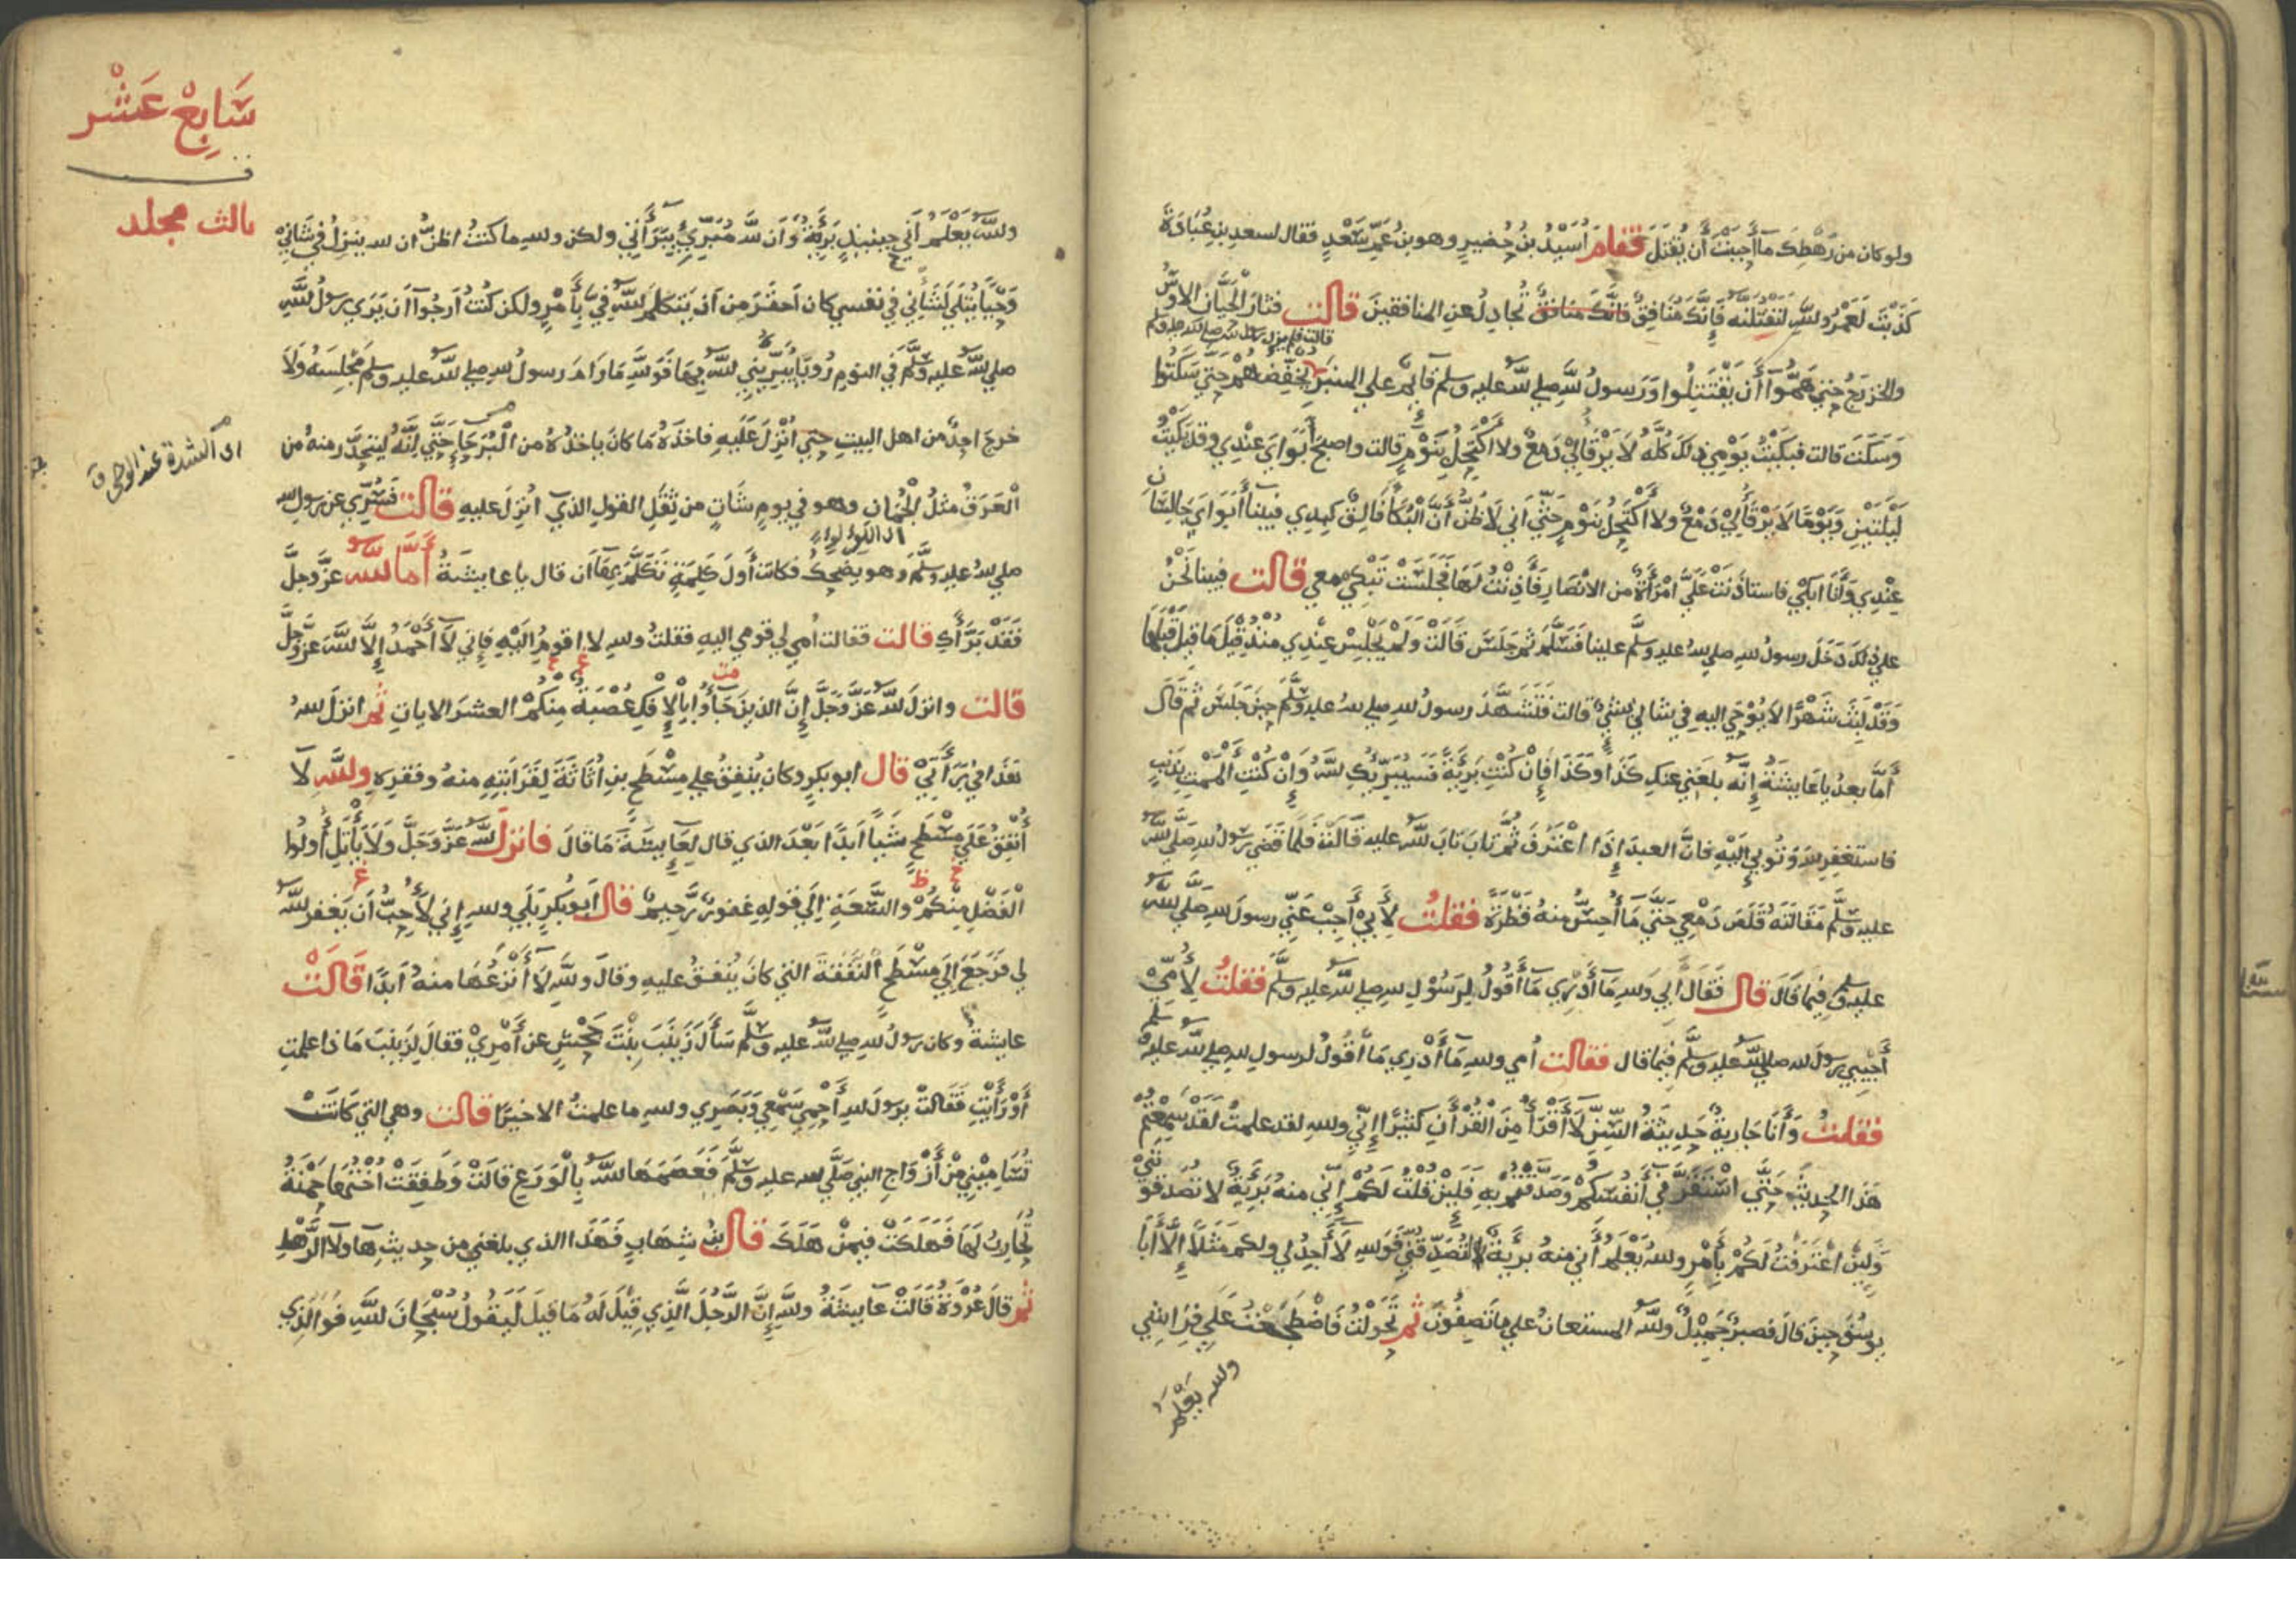 ولو كان من رهطك ما أحببت أن يقتل فقام أسيد بن حضير وهو بن عم سعد فقال لسعد بن عبادة
كذبت لعمر والله لنقتلنه فإنك منافق فانك منافق تجادل عن المنافقين قالت فثار الحيان الاوس
قالت فلم يزل رسول الله صلى الله عليه وسلم
والخزرج حتى هموا أن يقتتلوا ورسول الله صلى الله عليه وسلم قايم على المنبر يخفضهم حتى سكتوا
وسكت قالت فبكيت يومي ذلك كله لا يرقأ لي دمع ولا أكتحل بنوم قالت واصبح أبواي عندي وقد بكيت
ليلتين ويوما لا يرقأ لي دمع ولا أكتحل بنوم حتى اني لأظن أن البكاء فالق كبدي فبينا أبواي جالسان
عندي وأنا ابكي فاستاذنت علي امرأة من الانصار فأذنت لها فجلست تبكي معي قالت فبينا نحن
على ذلك دخل رسول الله صلى الله عليه وسلم علينا فسلم ثم جلس قالت ولم يجلس عندي منذ قيل ما قيل قبلها
وقد لبث شهرا لا يوحي اليه في شاني بشيء قالت فتشهد رسول الله صلى الله عليه وسلم حين جلس ثم قال
أما بعد يا عايشة إنه بلغني عنك كذا وكذا فإن كنت بريئة فسيبريك الله وإن كنت الممت بذنب
فاستغفر الله وتوبي إليه فان العبد إذا اعترف ثم تاب تاب الله عليه قالت فلما قضى رسول الله صلى الله
عليه وسلم مقالته قلص دمعي حتى ما أحس منه قطرة فقلت لأبي أجب عني رسول الله صلى الله
عليه وسلم فيما قال قال فقال أبي والله ما أدري ما أقول لرسول الله صلى الله عليه وسلم فقلت لأمي
أجيبي رسول الله صلى الله عليه وسلم فيما قال فقالت أمي والله ما أدري ما أقول لرسول الله صلى الله عليه وسلم
فقلت وأنا جارية حديثة السن لا أقرأ من القرأن كثيرا إني والله لقد علمت لقد سمعتم
هذا الحديث حتى استقر في أنفسكم وصدقتم به فلين قلت لكم إني منه بريئة لا تصدقوني
ولين اعترفت لكم بأمر والله يعلم أني منه بريئة لتصدقني فوالله لا أجد لي ولكم مثلا إلا أبا
يوسف حين قال فصبر جميل والله المستعان على ما تصفون ثم تحولت فاضطجعت على فراشي
والله يعلم
سابع عشر
ثالث مجلد
والله يعلم أني حينيذ بريئة وان الله مبري ببراني ولكن والله ما كنت اظن ان الله ينزل في شاني
وحيا يتلي لشاني في نفسي كان احقر من ان يتكلم الله في بأمر ولكن كنت ارجوا ان يري رسول الله
صلى الله عليه وسلم في النوم رويا يبريني الله بها فوالله ما رام رسول الله صلى الله عليه وسلم مجلسه ولا
خرج احد من اهل البيت حتى انزل عليه فاخذه ما كان ياخذه من البرحا حتى إنه ليتحدر منه من
اى الشدة عند الوحى
العرق مثل الجمان وهو في يوم شات من ثقل القول الذي انزل عليه قالت فسري عن رسول الله
اى اللؤلؤ
صلى الله عليه وسلم وهو يضحك فكانت أول كلمة تكلم بها ان قال يا عايشة أما الله عز وجل
فقد برأك قالت فقالت أمي لي قومي اليه فقلت والله لا اقوم إليه فإني لا أحمد إلا الله عز وجل
قالت وانزل الله عز وجل إن الذين جاؤا بالإفك عصبة منكم العشر الايات ثم انزل الله
هذا في برأتي قال ابو بكر وكان ينفق على مسطح بن اثاثة لقرابته منه وفقره والله لا
أنفق على مسطح شيا أبدا بعد الذي قال لعايشة ما قال فانزل الله عز وجل ولا يأتل أولوا
الفضل منكم والسعة إلى قوله غفور رحيم قال أبو بكر بلى والله إني لأحب أن يغفر الله
لي فرجع إلى مسطح النفقة التي كان ينفق عليه وقال والله لا أنزعها منه أبدا قالت
عايشة وكان رسول الله صلى الله عليه وسلم سأل زينب بنت جحش عن أمري فقال لزينب ما ذا علمت
أو رأيت فقالت يرسول الله أحمي سمعي وبصري والله ما علمت الا خيرا قالت وهي التي كانت
تساميني من أزواج النبي صلى الله عليه وسلم فعصمها الله بالورع قالت وطفقت أختها حمنة
تحارب لها فهلكت فيمن هلك قال بن شهاب فهذا الذي بلغني من حديث هآولآ الرهط
ثم قال عروة قالت عايشة والله إن الرجل الذي قيل له ما قيل ليقول سبحان الله فوالذي